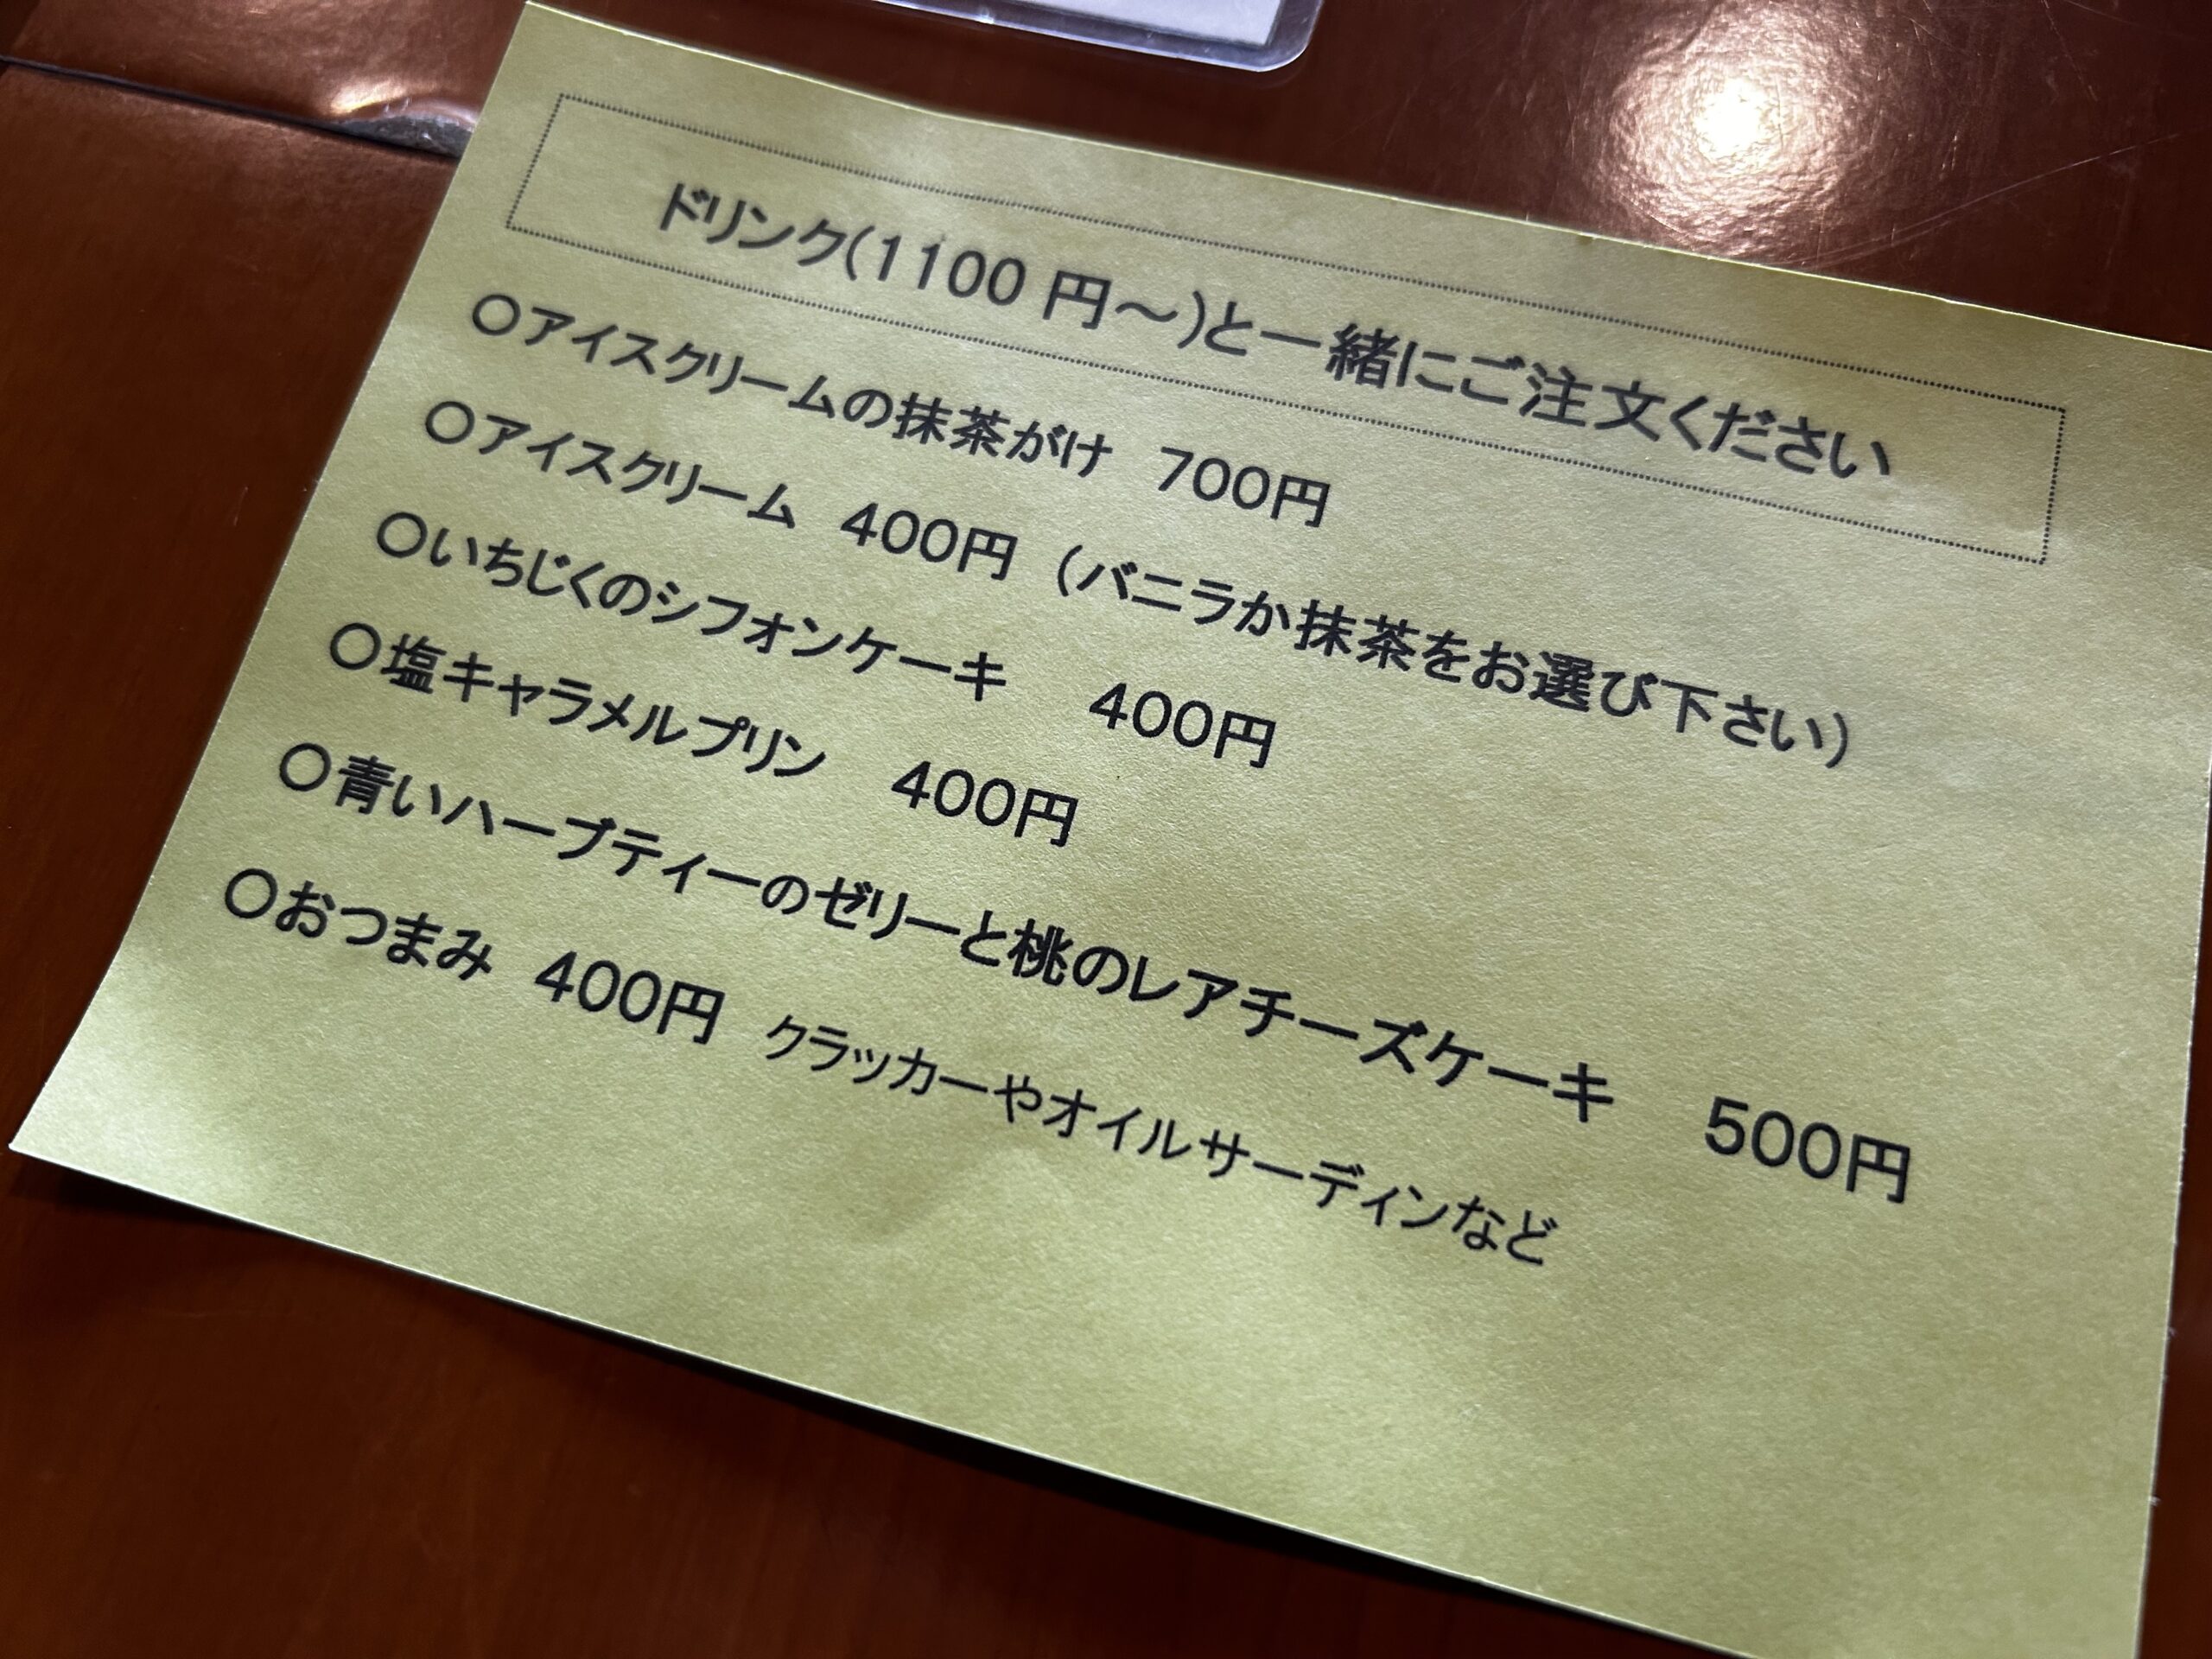 ドリンク(1100 円～)と一緒にご注文ください
○アイスクリームの抹茶がけ　700円
○アイスクリーム　400円（バニラか抹茶をお選び下さい）
○いちじくのシフォンケーキ　400円
○塩キャラメルプリン　400円
○青いハーブティーのゼリーと桃のレアチーズケーキ　500円
○おつまみ　400円　クラッカーやオイルサーディンなど